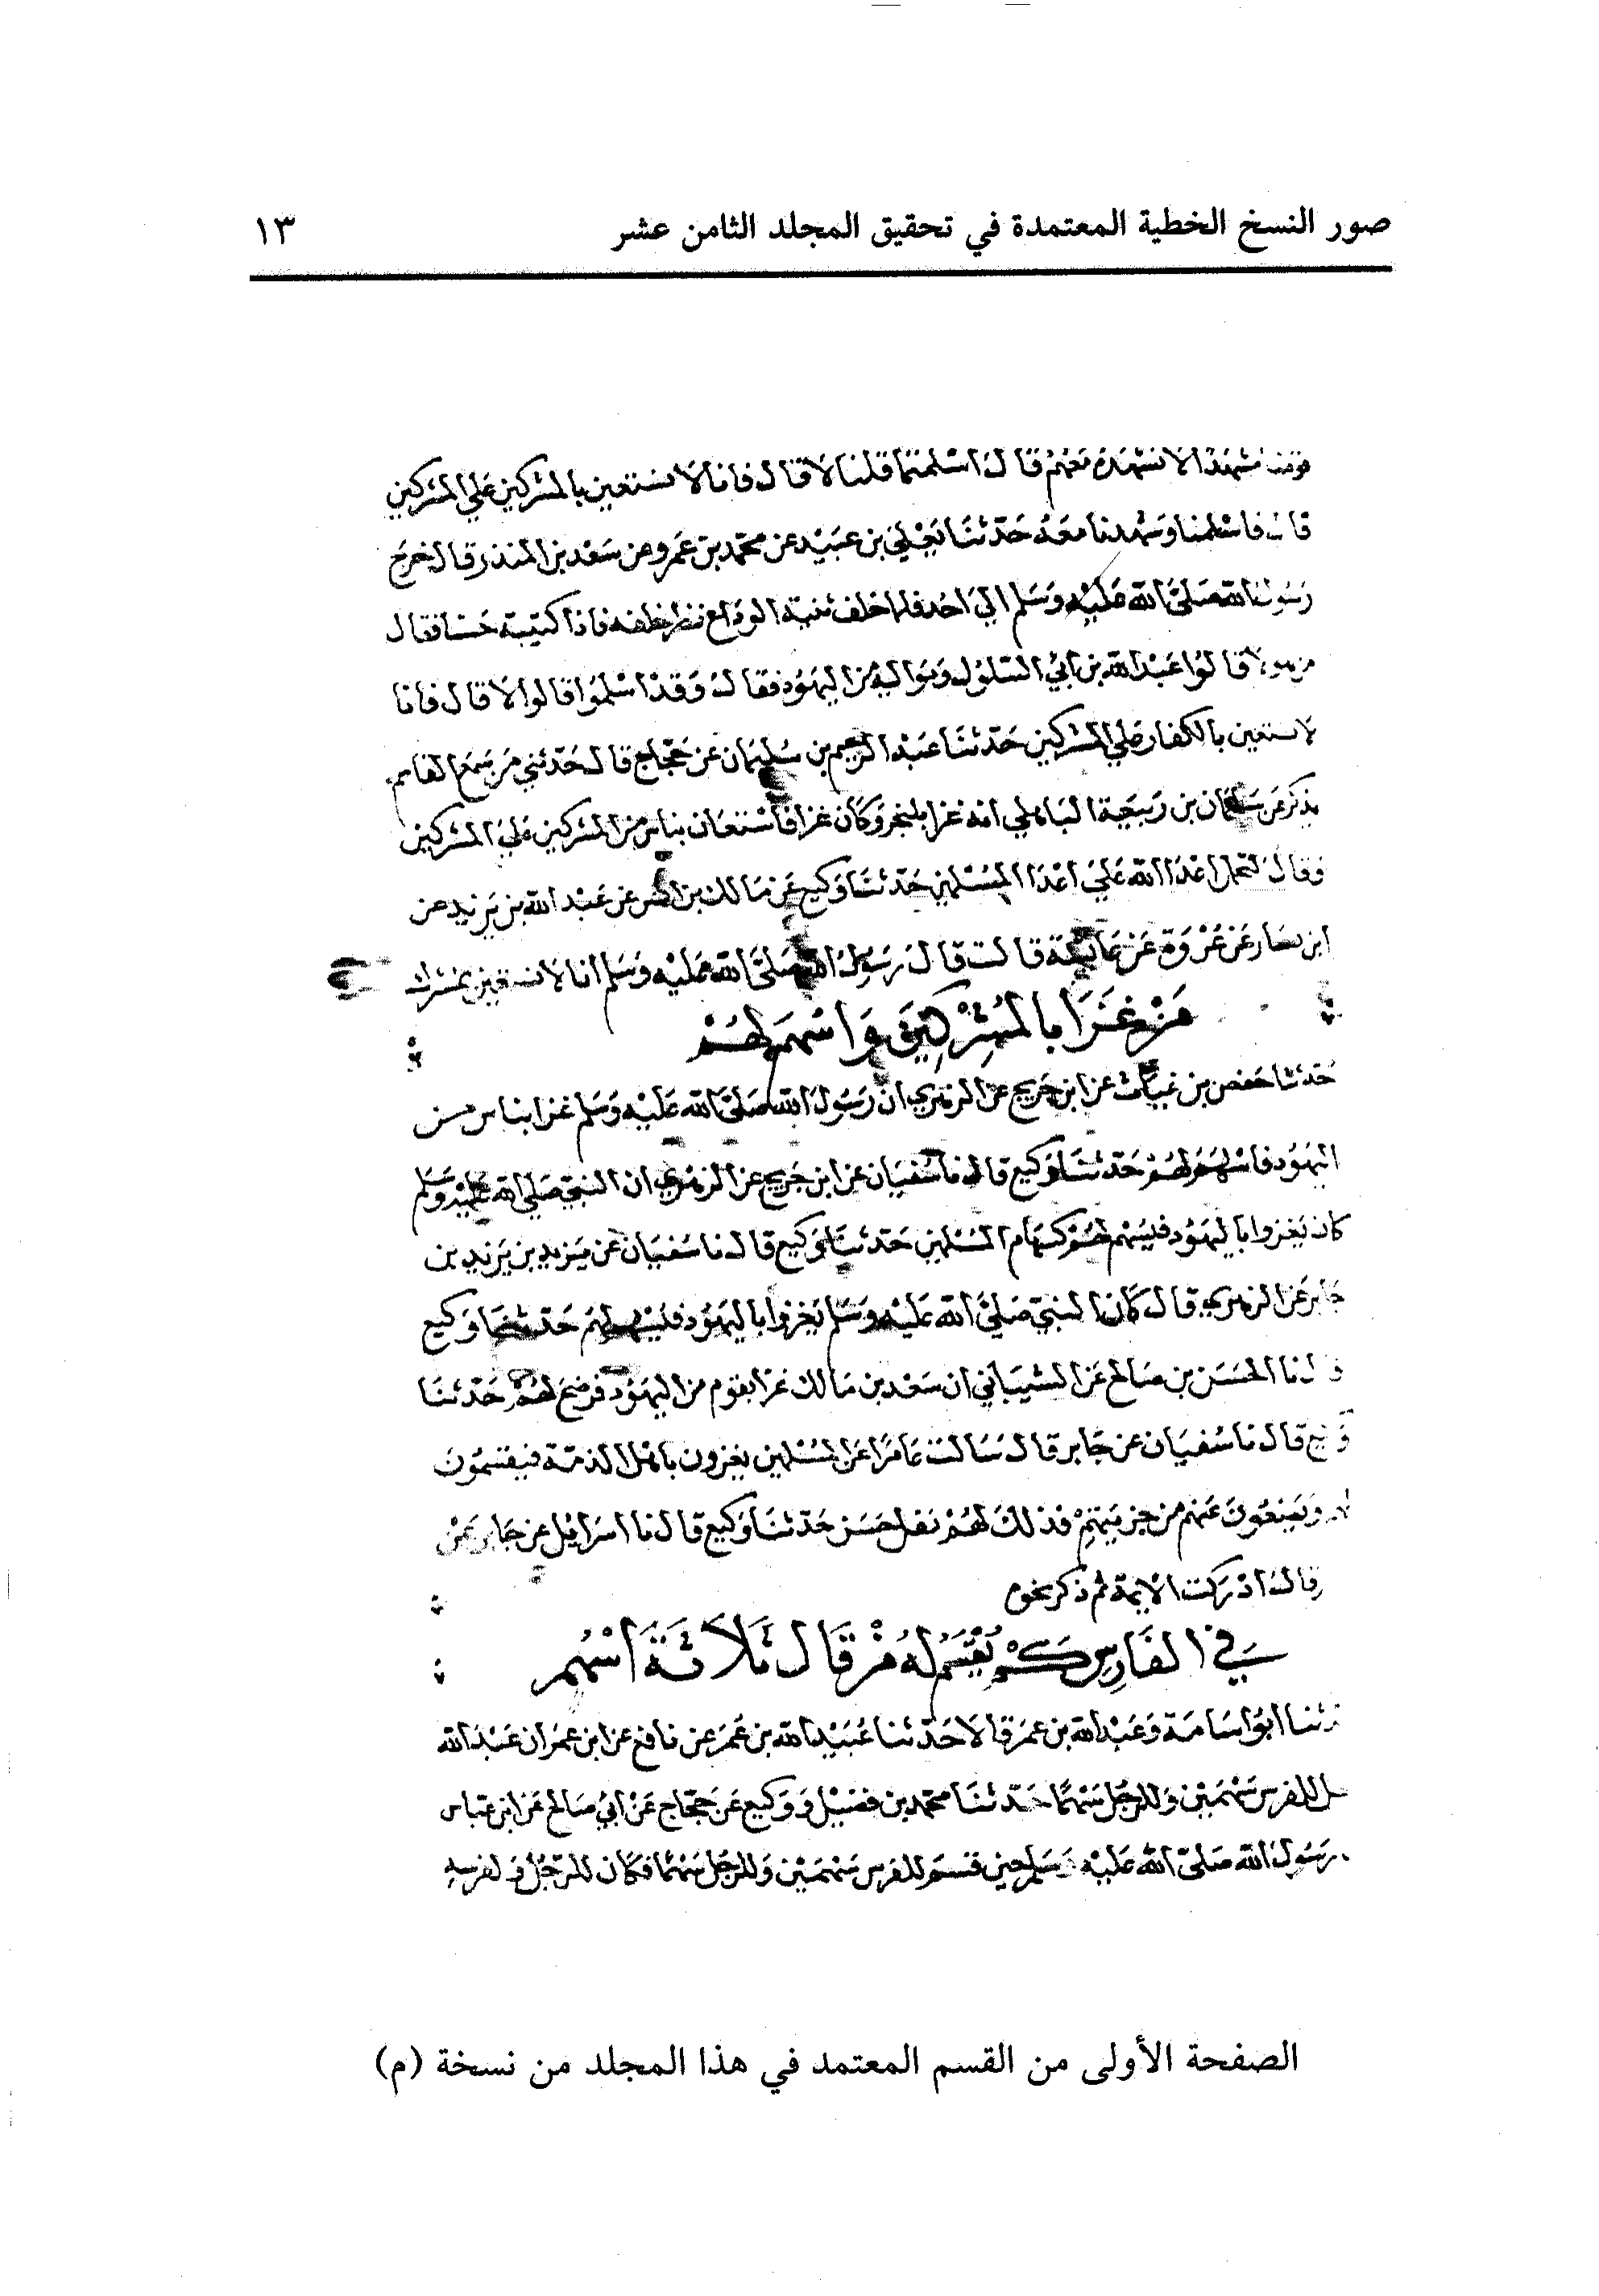 صور النسخ الخطية المعتمدة في تحقيق المجلد الثامن عشر ١٣
قومنا مشهدا لا نشهده معهم قال اسلمتما قلنا لا قال فانا لا نستعين بالمشركين علي المشركين
قال فاسلمنا وشهدنا معه حدثنا يعلي بن عبيد عن محمد بن عمرو عن سعد بن المنذر قال خرج
رسول الله صلى الله عليه وسلم الي احد فلما خلف ثنية الوداع نظر خلفه فاذا كتيبة خشنا فقال
من هولا قالوا عبد الله بن ابي السلول ومواليه من اليهود فقال وقد اسلموا قالوا لا قال فانا
لا نستعين بالكفار علي المشركين حدثنا عبد الرحيم بن سليمان عن حجاج قال حدثني من سمع القاسم
يذكر عن سلمان بن ربيعة الباهلي انه غزا بلنجر وكان غزا فاستعان بناس من المشركين علي المشركين
وقال لتحمل اعدا الله علي اعدا المسلمين حدثنا وكيع عن مالك بن انس عن عبد الله بن يزيد عن
ابن نيار عن عروة عن عايشة قالت قال رسول الله صلى الله عليه وسلم انا لا نستعين بمشرك
من غزا بالمشركين واسهم لهم
حدثنا حفص بن غياث عن ابن جريج عن الزهري ان رسول الله صلى الله عليه وسلم غزا بناس من
اليهود فاسهم لهم حدثنا وكيع قال نا سفيان عن ابن جريج عن الزهري ان النبي صلي الله عليه وسلم
كان يغزوا باليهود فيسهم لهم كسهام المسلمين حدثنا وكيع قال نا سفيان عن يزيد بن يزيد بن
جابر عن الزهري قال كان النبي صلى الله عليه وسلم يغزوا باليهود فيسهم لهم حدثنا وكيع
نا الحسن بن صالح عن الشيباني ان سعد بن مالك غزا بقوم من اليهود فرضخ لهم حدثنا
وكيع قال نا سفيان عن جابر قال سالت عامرا عن المسلمين يغزون باهل الذمة فيقسمون
لهم ويضعون عنهم من جزيتهم فذلك لهم نفل حسن حدثنا وكيع قال نا اسرايل عن جابر عن
قال ادركت الايمة ثم ذكر نحوه
في الفارس كم يقسم له من قال ثلاثة اسهم
حدثنا ابو اسامة وعبد الله بن عمر قالا حدثنا عبيد الله بن عمر عن نافع عن ابن عمر ان عبد الله
جعل للفرس سهمين وللرجل سهما حدثنا محمد بن فضيل ووكيع عن حجاج عن ابي صالح عن ابن عباس
رسول الله صلى الله عليه وسلم حنين قسم للفرس سهمين وللرجل سهما فكان للرجل ولفرسه
الصفحة الأولى من القسم المعتمد في هذا المجلد من نسخة (م)